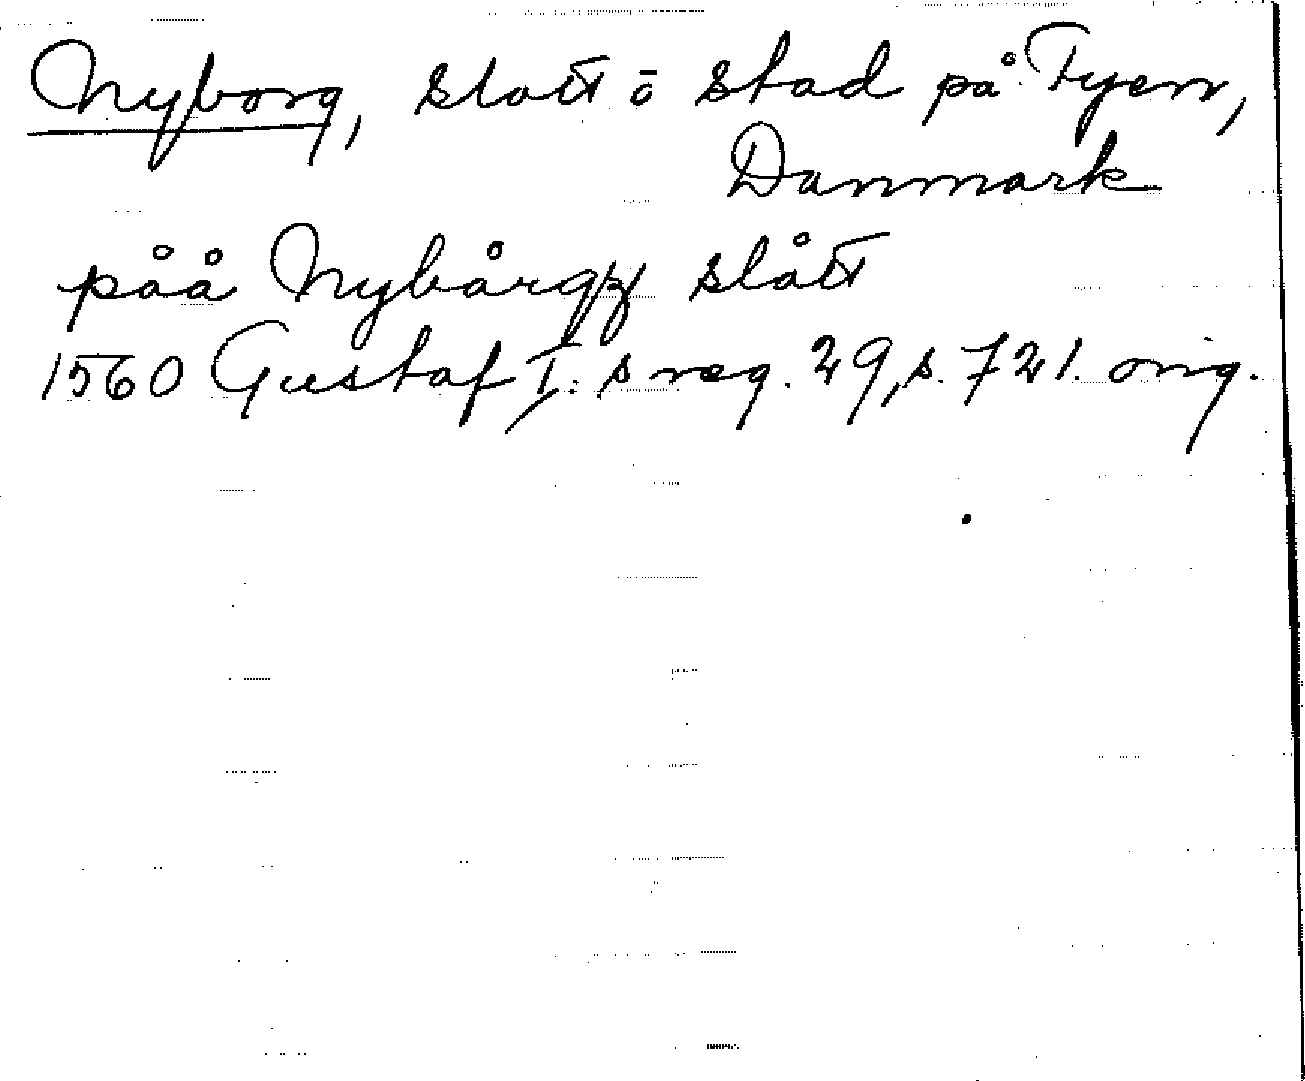 Nyborg, slott ō stad på Fyen,
Danmark
påå Nybårgz slått
1560 Gustaf I:s reg. 29, s. 721. orig.